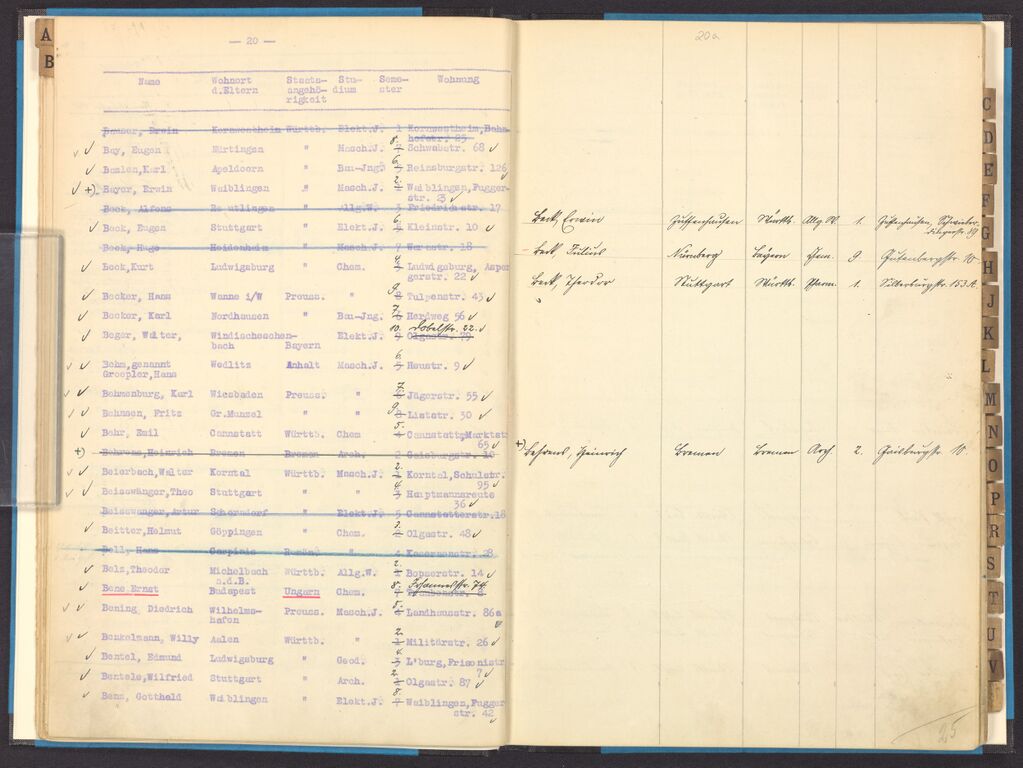 A
B
— 20 —
Name Wohnort d.Eltern Staatsangehörigkeit Studium Semester Wohnung
Bauser, Erwin Kornwestheim Württb. Elekt.J. 1 Kornwestheim, Bahn
hofstr. 25
Bay, Eugen Nürtingen " Masch.J. 8. Schwabstr. 68
Bazlen, Karl Apeldoorn " Bau-Jng. 6. Reinsburgstr. 126
+) Bayer, Erwin Waiblingen " Masch.J. 2. Waiblingen, Fugger-
str. 23
Beck, Alfons Reutlingen " Allg.W. 3 Friedrichstr. 17
Beck, Eugen Stuttgart " Elekt.J. 6. Kleinstr. 10
Beck, Hugo Heidenheim " Masch.J. 7 Wernstr. 18
Beck, Kurt Ludwigsburg " Chem. 4. Ludwigsburg, Asper
gerstr. 22
Becker, Hans Wanne i/W Preuss. " 9. 8 Tulpenstr. 43
Becker, Karl Nordhausen " Bau-Jng. 7. 6 Herdweg 56
10. Dobelstr. 22.
Beger, Walter, Windischeschen- Elekt.J. 9 Olgastr. 79
bach Bayern
Behm, genannt Wedlitz Anhalt Masch.J. 6. 5 Heustr. 9
Groepler, Hans
Behmenburg, Karl Wiesbaden Preuss. " 7. Jägerstr. 55
Behnsen, Fritz Gr.Munzel " " 9. 8 Liststr. 30
Behr, Emil Cannstatt Württb. Chem 5. 4 Cannstatt, Marktstr
65
+) Behrens, Heinrich Bremen Bremen Arch. 2 Gaisburgstr. 10
Beierbach, Walter Korntal Württb. Masch.J. 2. Korntal, Schulstr.
95
Beisswänger, Theo Stuttgart " " 4. 3 Hauptmannsreute
36
Beisswanger, Artur Schorndorf " Elekt.J. 5 Cannstatterstr. 18
Beitter, Helmut Göppingen " Chem. 3. 2 Olgastr. 48
Bell, Hans Caspinis Rumän. " 4 Kasernenstr. 28
Belz, Theodor Michelbach Württb. Allg.W. 2. 1 Bopserstr. 14
a.d.B.
Bene Ernst Budapest Ungarn Chem. 8. Johannesstr. 74
Bening, Diedrich Wilhelms- Preuss. Masch.J. 5. Landhausstr. 86a
hafen
Benkelmann, Willy Aalen Württb. " 2. 1 Militärstr. 26
Bentel, Edmund Ludwigsburg " Geod. 4. 3 L'burg, Frisonistr
7
Bentele, Wilfried Stuttgart " Arch. 2. 1 Olgastr. 87
Benz, Gotthold Waiblingen " Elekt.J. 8. 7 Waiblingen, Fugger
str. 42
20a
Beck, Erwin Zuffenhausen Württb. Allg.W. 1. Zuffenhausen, Schwieber-
dingerstr. 89
- Beck, Julius Nürnberg Bayern Chem. 9 Gutenbergstr. 10
Beck, Theodor Stuttgart Württb. Pharm. 1. Silberburgstr. 153 A.
+) Behrens, Heinrich Bremen Bremen Arch. 2. Gaisburgstr. 10.
25
C
D
E
F
G
H
J
K
L
M
N
O
P
R
S
T
U
V